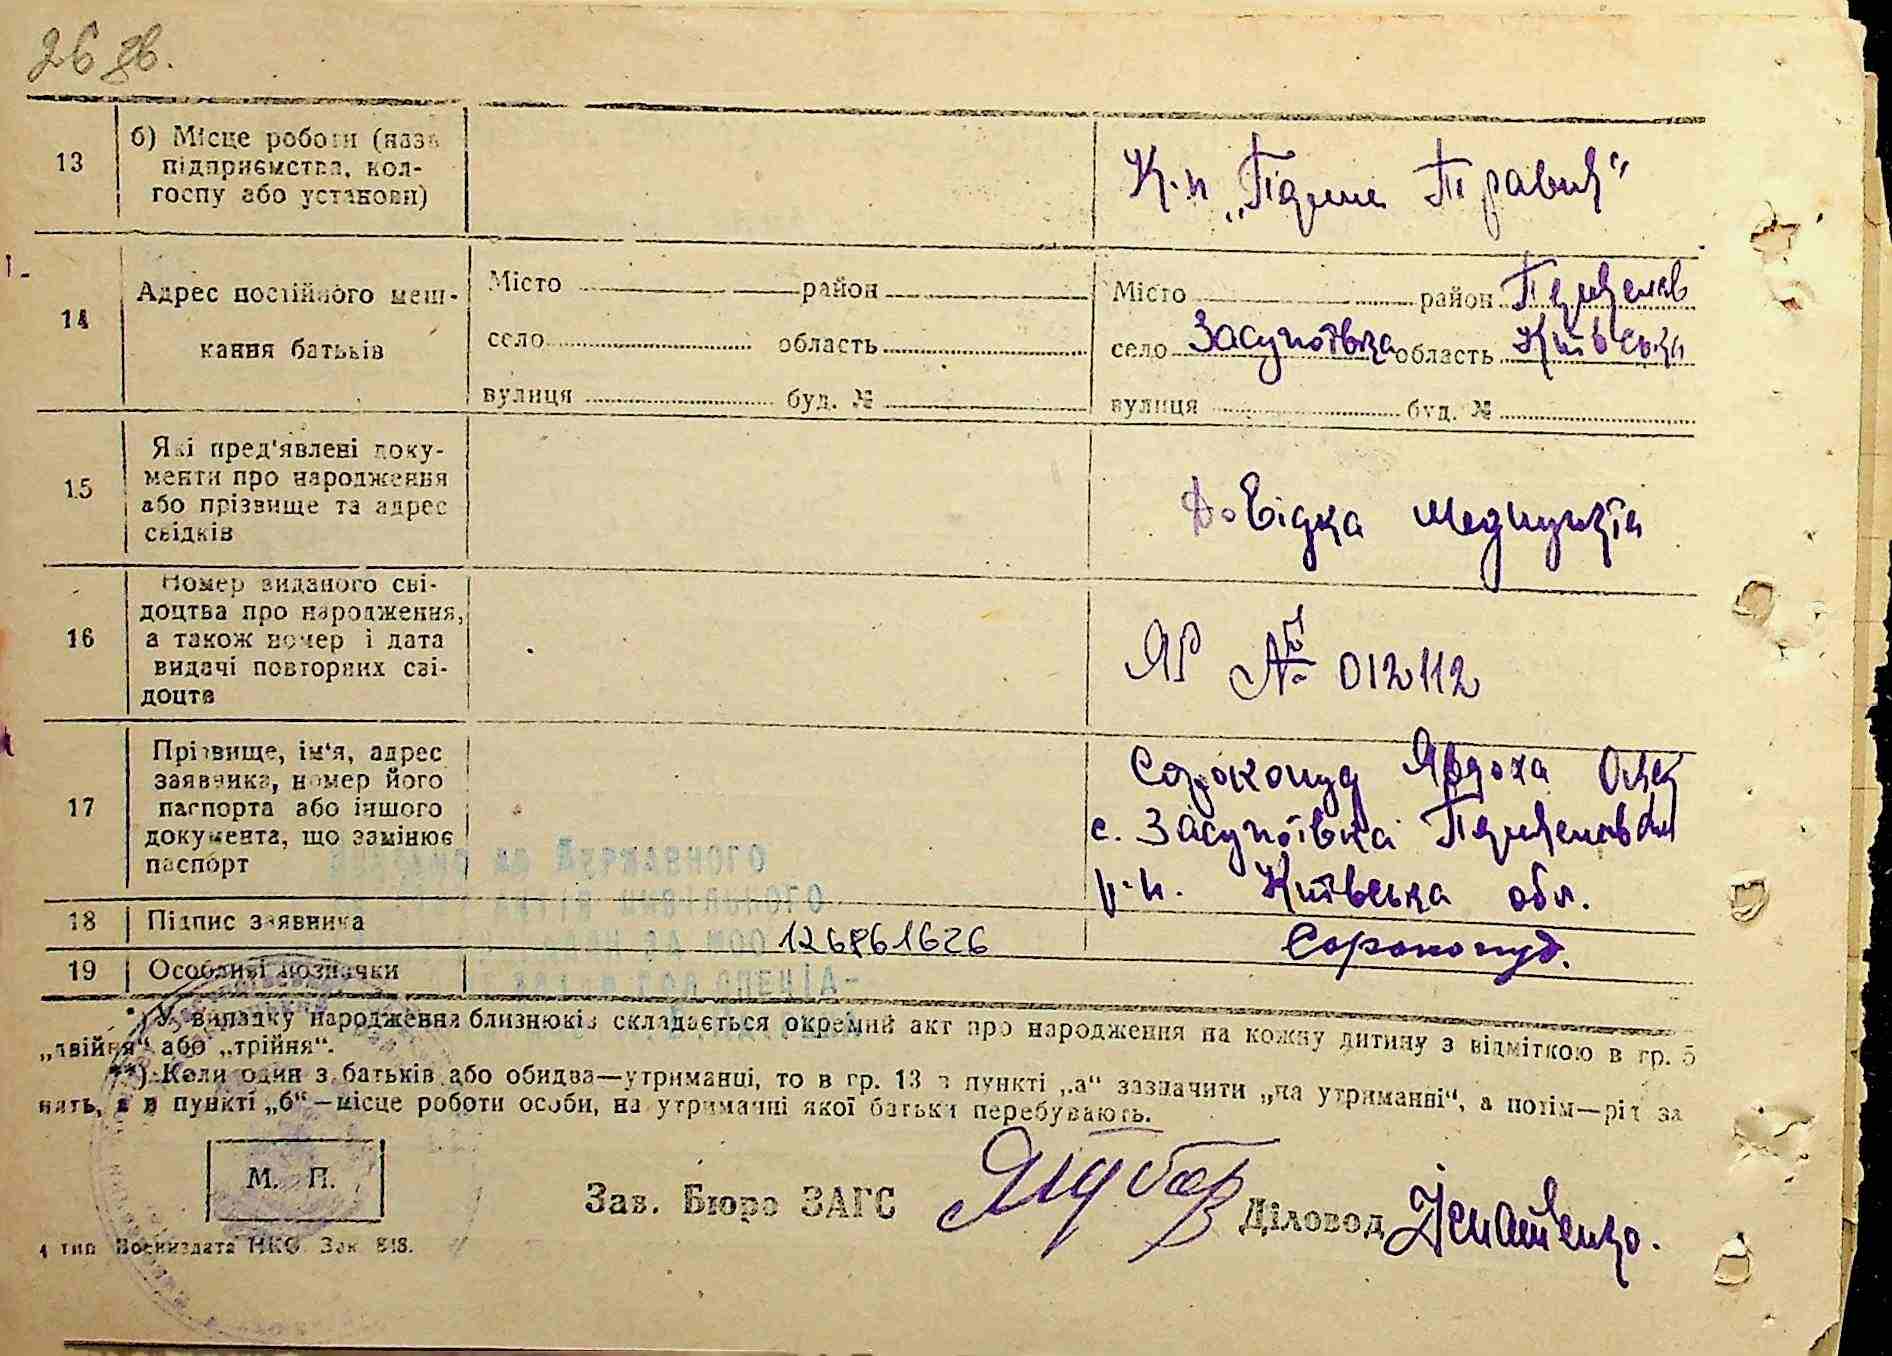 26 зв.
13
б) Місце роботи (назв
підприємства, кол-
госпу або установи)
К-п „Перше Травня“
14
Адрес постійного меш-
кання батьків
Місто район
село область
вулиця буд. №
Місто район Переяслав
село Засупоївка область Київська
вулиця буд. №
15
Які пред'явлені доку-
менти про народження
або прізвище та адрес
свідків
Довідка медпункта
16
Номер виданого сві-
доцтва про народження,
а також номер і дата
видачі повторних сві-
доцтв
ЯР № 012112
17
Прізвище, ім'я, адрес
заявника, номер його
паспорта або іншого
документа, що замінює
паспорт
Сорокопуд Явдоха
с. Засупоївка
р-н. Київська обл.
18 Підпис заявника
Сорокопуд.
19 Особливі позначки
126861626
*) У випадку народження близнюків складається окремий акт про народження на кожну дитину з відміткою в гр. 5
„двійня“ або „трійня“.
**) Коли один з батьків або обидва—утриманці, то в гр. 13 в пункті „а“ зазначити „на утриманні“, а потім—рід за
нять, а в пункті „б“—місце роботи особи, на утриманні якої батьки перебувають.
М. П.
Зав. Бюро ЗАГС
Діловод Ігнатенко.
4 тип Воениздата НКО Зак 818.